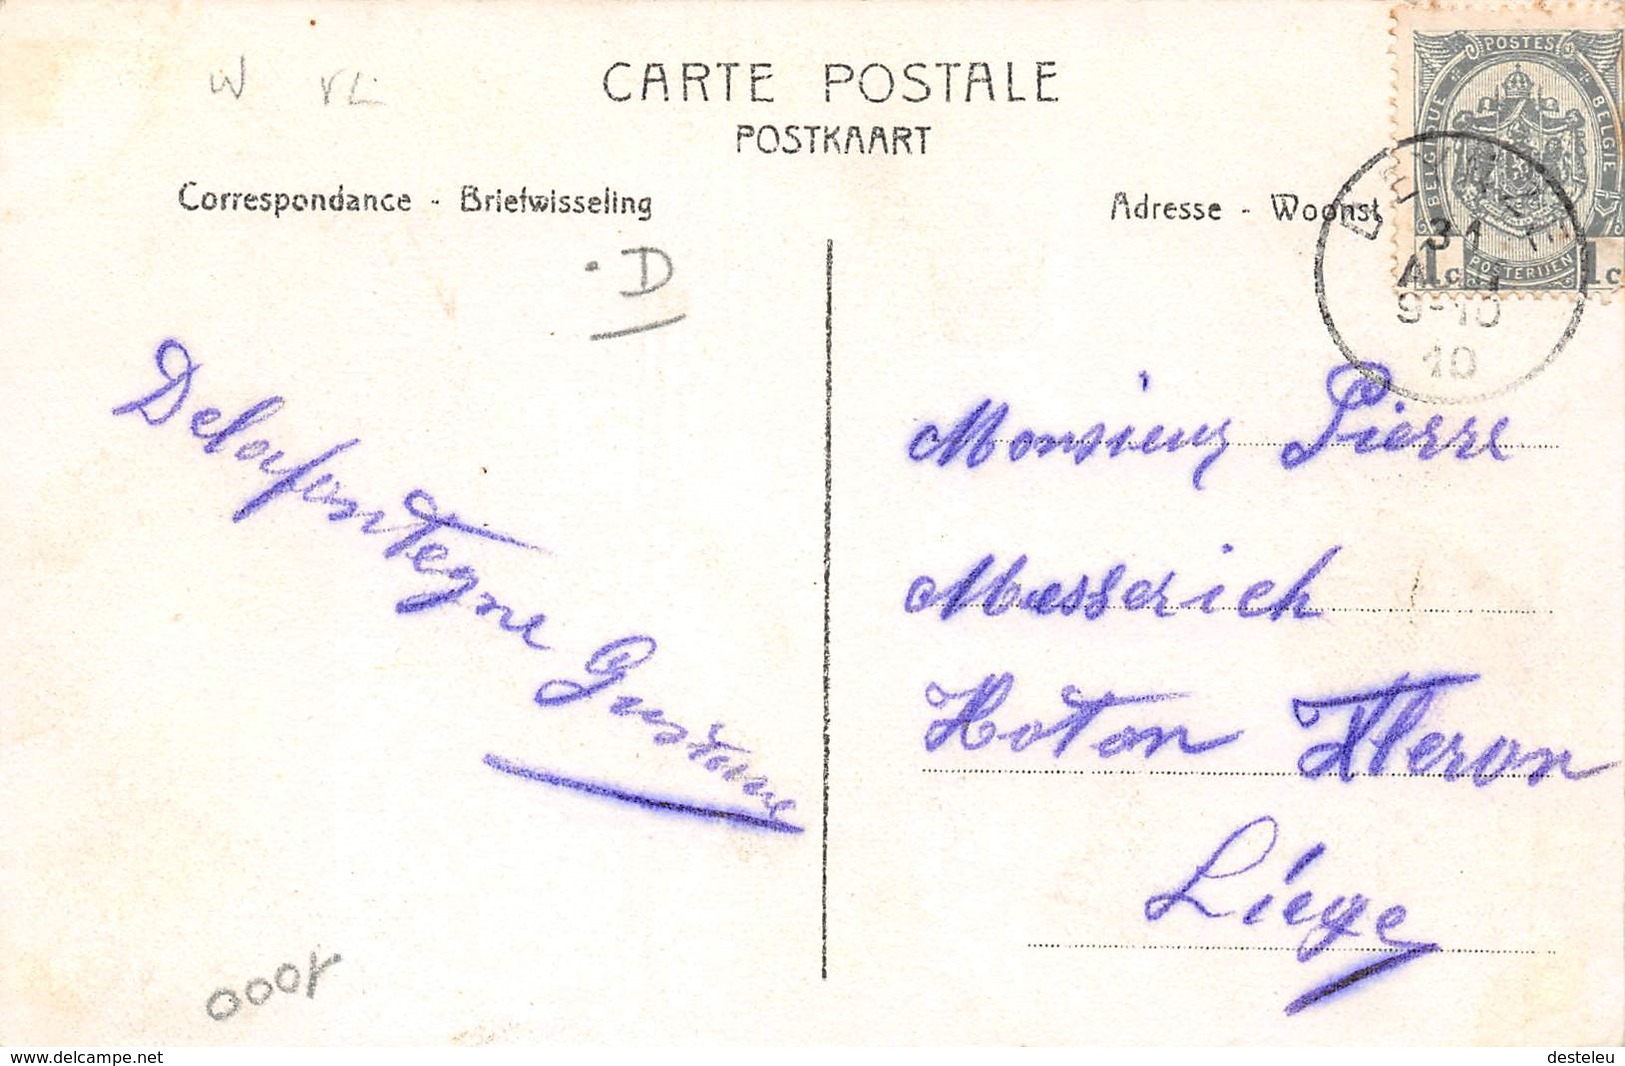 W VL
CARTE POSTALE
POSTKAART
Correspondance - Briefwisseling
Adresse - Woonst
POSTES
BELGIQUE
BELGIË
POSTERIJEN
1c 1c
31
9-10
10
D
Delafontegne Gustave
Monsieur Pierre
Messerich
Hoton Fleron
Liége
www.delcampe.net
desteleu